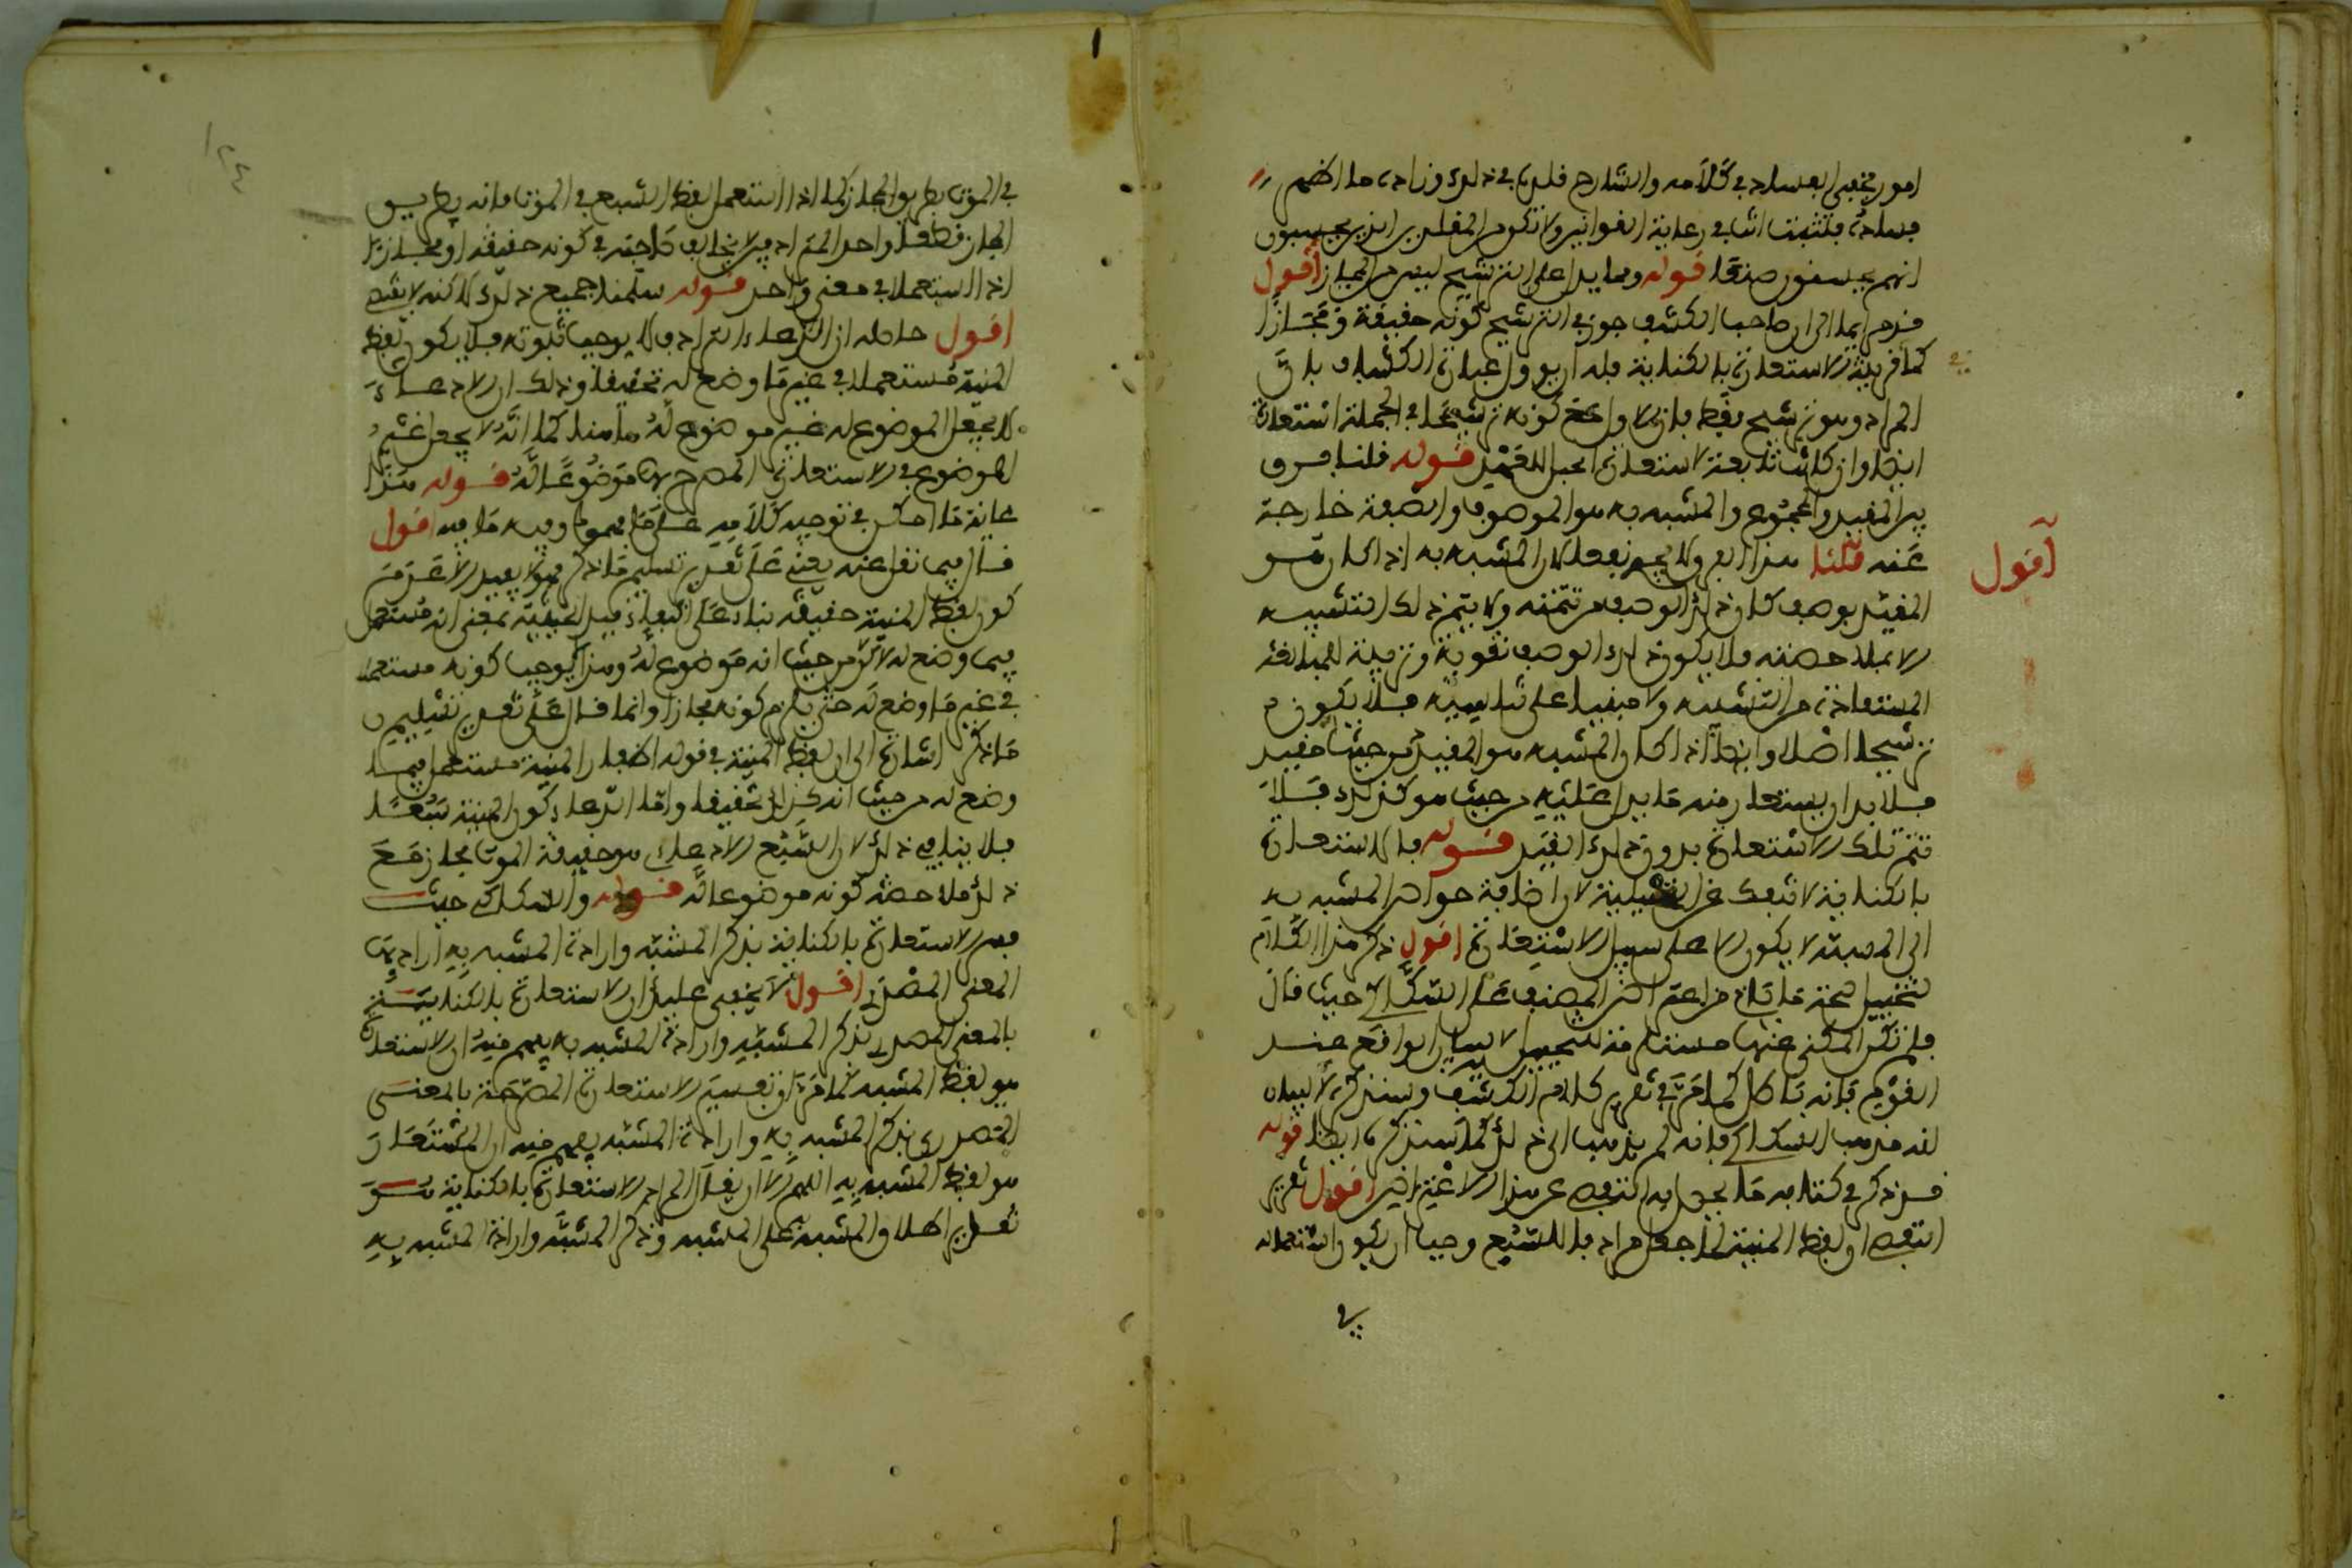 امور يخفى الفساد في كلامه والشارح قلده في ذلك وزاد ما اظهر
فساده فلتثبت انت في رعاية القوانين ولا تكن من المقلدين الذين يحسبون
انهم يحسنون صنعا قوله ومما يدل على ان الترشيح ليس من المجاز اقول
قد مر ايما الى ان صاحب الكشف جوز في الترشيح كونه حقيقة ومجازا
كما في قرينة الاستعارة بالكناية قيل اريد وان عبارة الكشاف بان
المراد وهو ترشيح فقط بل الاولى مع كونه ترشيحا في الجملة استعارة
ايضا وان كانت تابعة لاستعارة الحبل للعهد قوله قلنا فرق
بين المقيد والمجموع والمشبه به هو الموصوف والصفة خارجة
عنه قلنا هذا الفرق لا يجدي نفعا لان المشبه به اذا كان هو
اقول
المقيد بوصف كان ذلك الوصف من تتمته ولا يتم ذلك التشبيه
الا بملاحظته فلا يكون ذلك الوصف تقوية وتربية للمبالغة
المستفادة من التشبيه ولا مبنيا على تناسيه فلا يكون
ترشيحا اصلا وايضا اذا كان المشبه به هو المقيد من حيث هو مقيد
فلا بد ان يستعار منه ما يدل عليه من حيث هو كذلك فلا
تتم تلك الاستعارة بدون ذلك القيد قوله فالاستعارة
بالكناية لا تنفك عن التخييلية لان اضافة خواص المشبه به
الى المشبه لا يكون الا على سبيل الاستعارة اقول ذكر هذا الكلام
لتخييل صحة ما قاله من اعتراض المصنف على السكاكي حيث قال
فلم تكن المكني عنها مستلزمة للتخييل لا لبيان الواقع عند
القوم فانه باطل كما مر في تقرير كلام الكشف وسنذكره لا لبيان
انه مذهب السكاكي فانه لم يذهب الى ذلك كما سنذكره ايضا قوله
قد ذكر في كتابه ما يحصل به التفصي عن هذا الاعتراض اقول تقرير
التفصي ان لفظ المنية لما جعل مرادفا للسبع وجب ان يكون استعماله
في
في الموت بطريق المجاز كما اذا استعمل لفظ السبع في الموت فانه بطريق
المجاز قطعا واحد المترادفين لا يخالف صاحبه في كونه حقيقة او مجازا
اذا استعملا في معنى واحد قوله سلمنا جميع ذلك لكنه لا يقتضي
اقول حاصله ان ادعاء الترادف لا يوجب ثبوته فلا يكون لفظ
المنية مستعملا في غير ما وضع له تحقيقا وذلك ان الادعاء
لا يجعل الموضوع له غير موضوع له هاهنا كما انه لا يجعل غير
الموضوع في الاستعارة المصرح بها موضوعا له قوله هذا
غاية ما امكن في توجيه كلامه على ما فهموه وفيه ما فيه اقول
قال فيما نقل عنه يعني على تقدير تسليم ما ذكر فهو لا يفيد الا عدم
كون لفظ المنية حقيقة بناء على انتفاء قيد الحيثية بمعنى انه مستعمل
فيما وضع له لا من حيث انه موضوع له وهذا لا يوجب كونه مستعملا
في غير ما وضع له حتى يلزم كونه مجازا وانما قال على تقدير تسليم
ما ذكر اشارة الى ان لفظ المنية في قوله اظفار المنية مستعمل فيما
وضع له من حيث انه كذلك تحقيقا واما ادعاء كون المنية سبعا
فلا ينافي ذلك لان السبع الادعائي هو حقيقة الموت مجاز مع
ذلك ملاحظة كونه موضوعا له قوله والسكاكي حيث
فسر الاستعارة بالكناية بذكر المشبه وارادة المشبه به اراد بها
المعنى المصدري اقول لا يخفى عليك ان الاستعارة بالكناية
بالمعنى المصدري بذكر المشبه وارادة المشبه به يفهم منه ان الاستعارة
هو لفظ المشبه كما مر ان تفسير الاستعارة المصرحة بالمعنى
المصدري بذكر المشبه به وارادة المشبه يفهم منه ان المستعار
هو لفظ المشبه به اللهم الا ان يقال المراد الاستعارة بالكناية هو
تقدير اطلاق المشبه على المشبه وذكر المشبه وارادة المشبه به